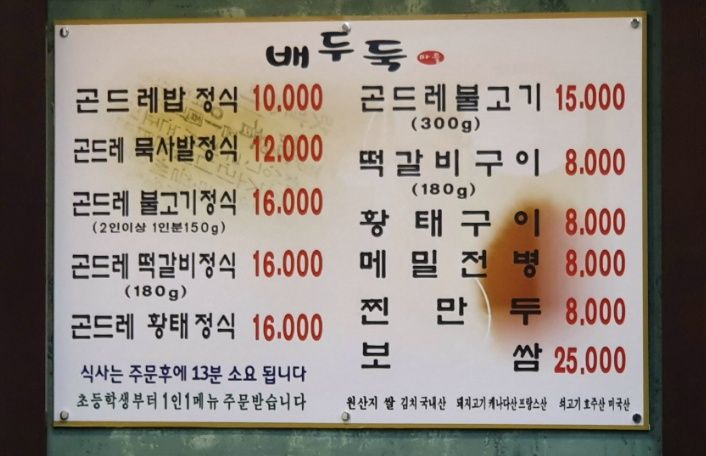 배두둑 마을
곤드레밥 정식 10.000
곤드레 묵사발정식 12.000
곤드레 불고기정식 16.000
(2인이상 1인분150g)
곤드레 떡갈비정식 16.000
(180g)
곤드레 황태정식 16.000
식사는 주문후에 13분 소요 됩니다
초등학생부터 1인1메뉴 주문받습니다
곤드레불고기 15.000
(300g)
떡갈비구이 8.000
(180g)
황태구이 8.000
메밀전병 8,000
찐만두 8.000
보쌈 25,000
원산지 쌀 김치 국내산 돼지고기 캐나다산 프랑스산 쇠고기 호주산 미국산